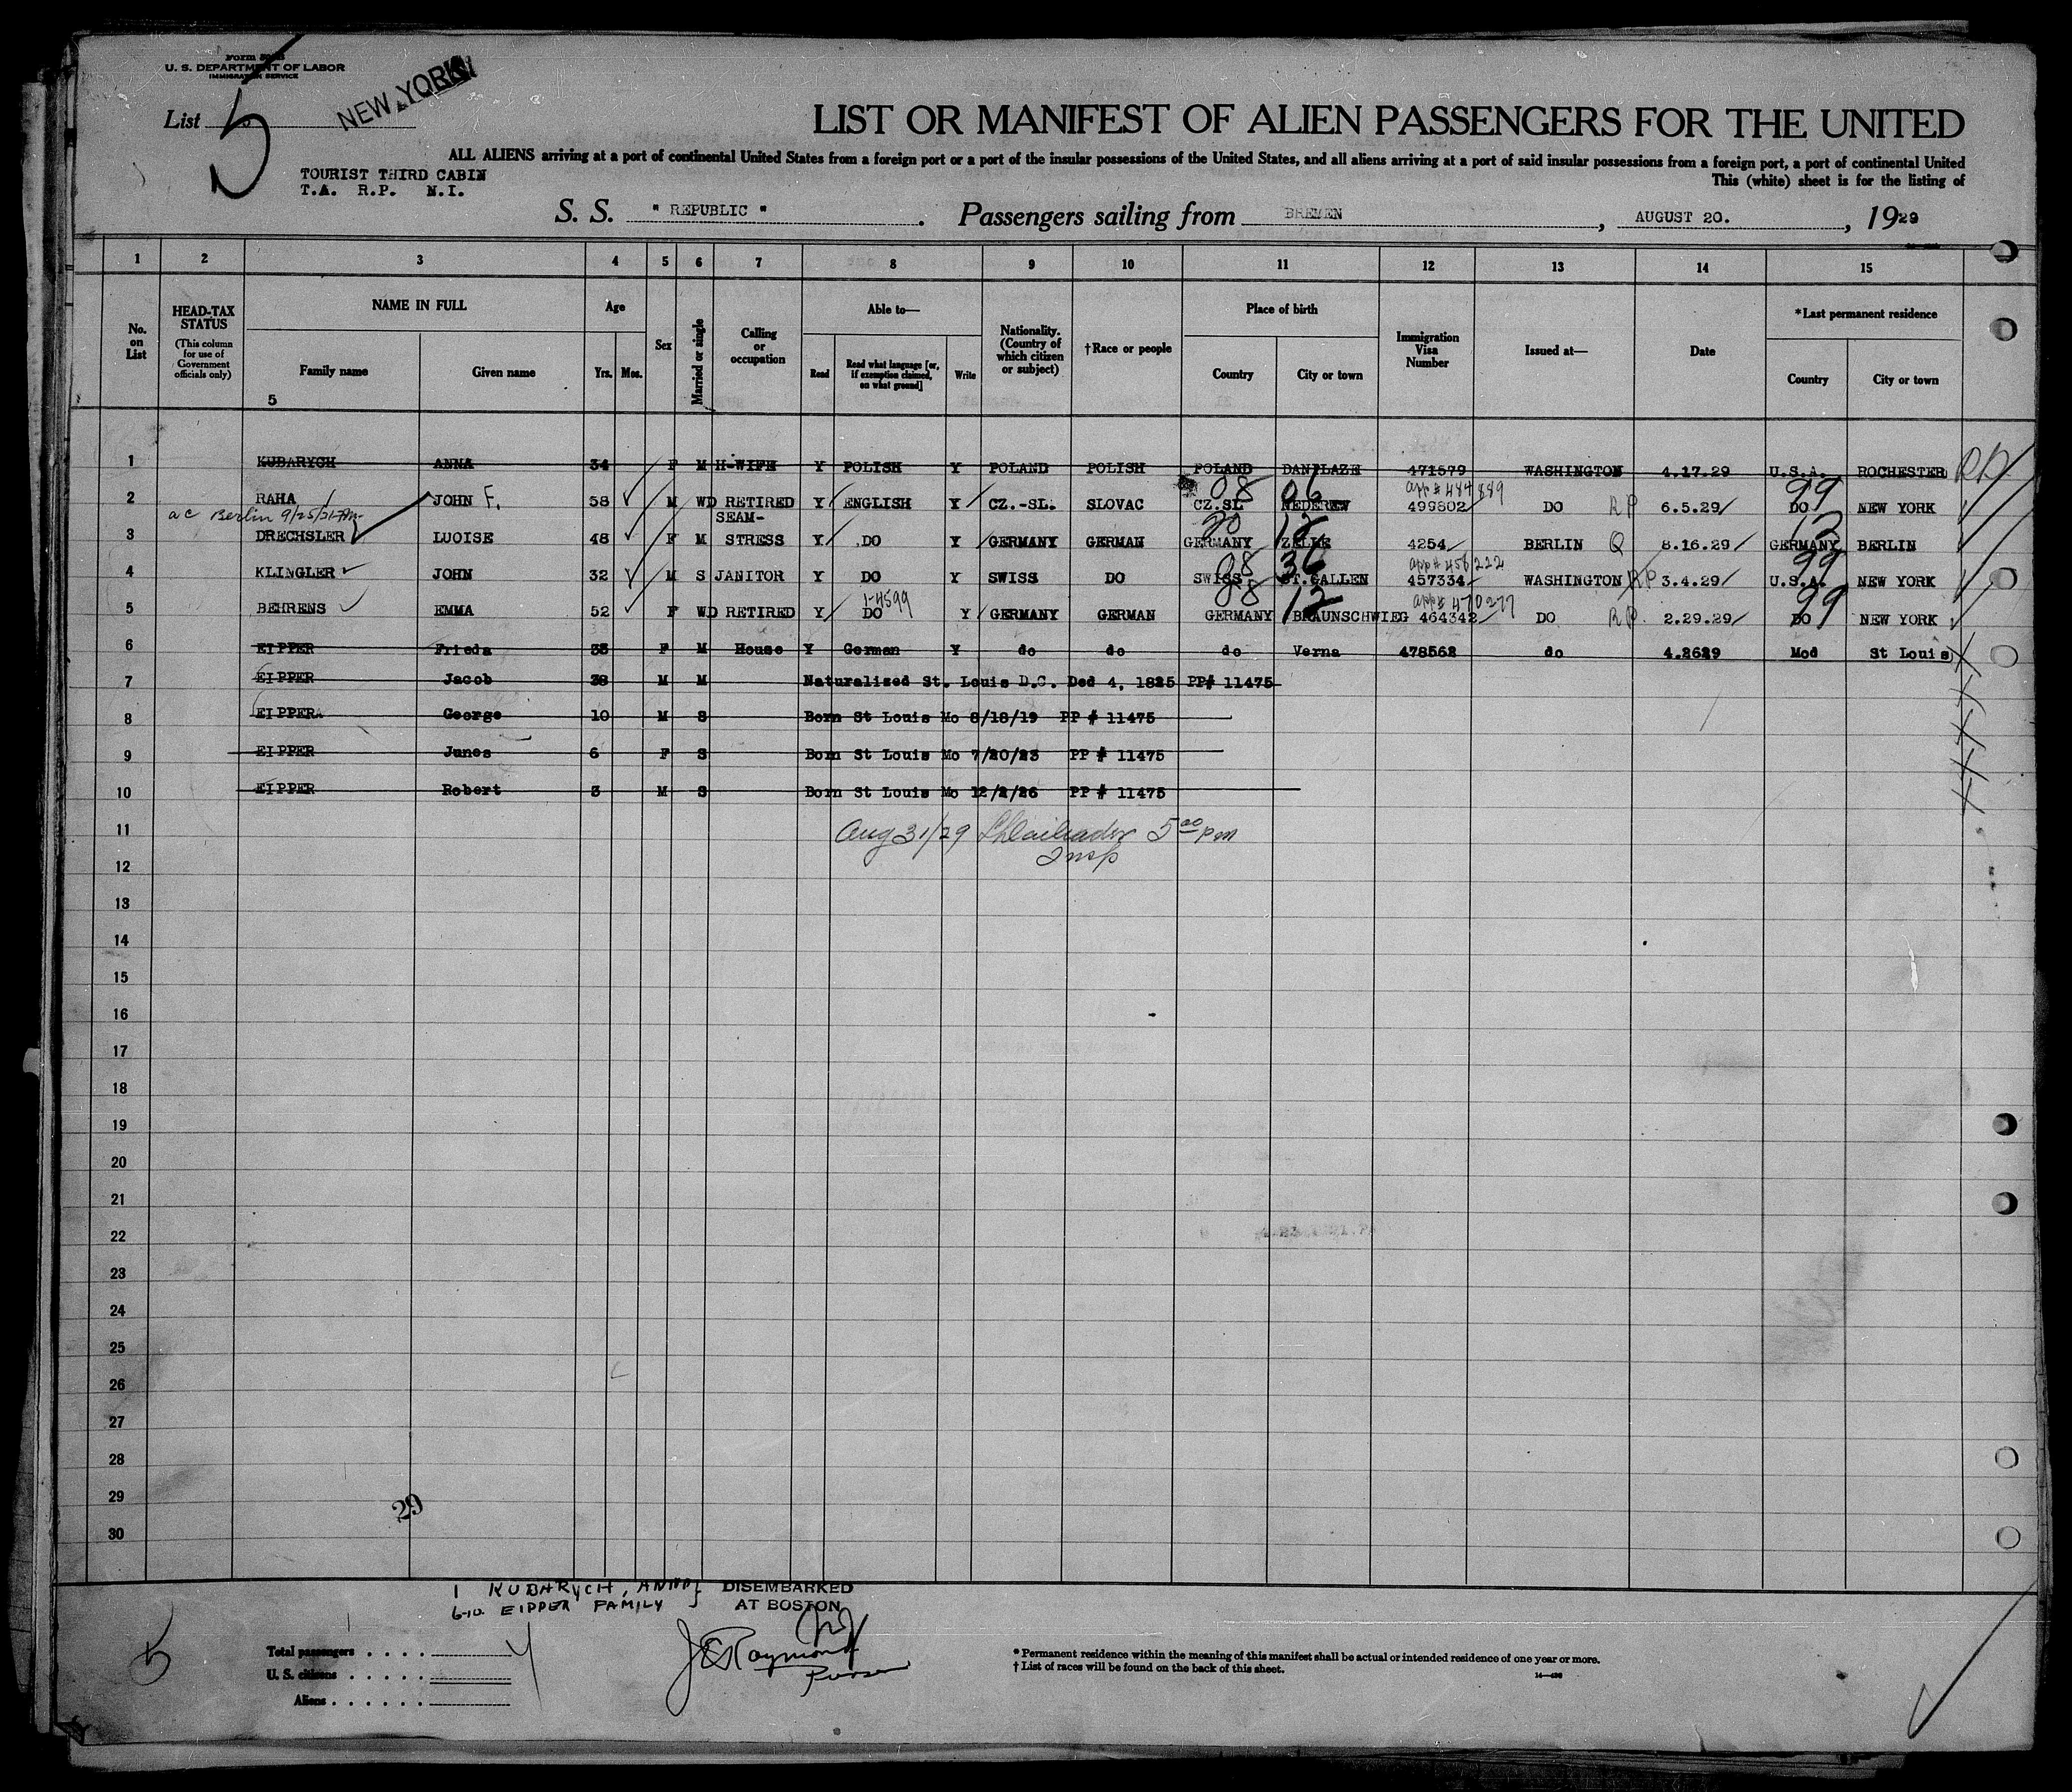 Form 500
U. S. DEPARTMENT OF LABOR
IMMIGRATION SERVICE
List 5
NEW YORK
LIST OR MANIFEST OF ALIEN PASSENGERS FOR THE UNITED
ALL ALIENS arriving at a port of continental United States from a foreign port or a port of the insular possessions of the United States, and all aliens arriving at a port of said insular possessions from a foreign port, a port of continental United
This (white) sheet is for the listing of
TOURIST THIRD CABIN
T.A. R.P. N.I.
S. S. " REPUBLIC ". Passengers sailing from BREMEN, AUGUST 20., 1929
1 2 3 4 5 6 7 8 9 10 11 12 13 14 15
No. on List
HEAD-TAX STATUS (This column for use of Government officials only)
NAME IN FULL Family name Given name
Age Yrs. Mos.
Sex
Married or single
Calling or occupation
Able to— Read Read what language [or, if exemption claimed, on what ground] Write
Nationality. (Country of which citizen or subject)
†Race or people
Place of birth Country City or town
Immigration Visa Number
Issued at—
Date
*Last permanent residence Country City or town
5
1 KUBARYCH ANNA 34 F M H-WIFE Y POLISH Y POLAND POLISH POLAND 471579 WASHINGTON 4.17.29 U.S.A. ROCHESTER RP
08 06 app# 484889 99
2 RAHA JOHN F. 58 M WD RETIRED Y ENGLISH Y CZ.-SL. SLOVAC CZ.SL NEDEREW 499802 DO RP 6.5.29 DO NEW YORK
ac Berlin 9/25/31
20 12 12
3 DRECHSLER LUOISE 48 F M SEAM-STRESS Y DO Y GERMANY GERMAN GERMANY ZELLE 4254 BERLIN Q 8.16.29 GERMANY BERLIN
08 36 app# 456222 99
4 KLINGLER JOHN 32 M S JANITOR Y DO Y SWISS DO SWISS ST.GALLEN 457334 WASHINGTON RP 3.4.29 U.S.A. NEW YORK
1-4599 08 12 app# 470277 99
5 BEHRENS EMMA 52 F WD RETIRED Y DO Y GERMANY GERMAN GERMANY BRAUNSCHWIEG 464342 DO RP 2.29.29 DO NEW YORK
6 EIPPER Frieda 35 F M House Y German Y do do do Verna 478562 do 4.2629 Mod St Louis
7 EIPPER Jacob 38 M M Naturalized St. Louis D.C. Ded 4, 1825 PP# 11475
8 EIPPERA George 10 M S Born St Louis Mo 8/18/19 PP # 11475
9 EIPPER Junes 6 F S Born St Louis Mo 7/20/23 PP # 11475
10 EIPPER Robert 3 M S Born St Louis Mo 12/2/26 PP # 11475
11 Aug 31/29 5 00 pm
Insp
12
13
14
15
16
17
18
19
20
21
22
23
24
25
26
27
28
29
30
29
1 KUBARYCH, ANNA } DISEMBARKED
6-10. EIPPER FAMILY } AT BOSTON
J E Raymond
Purser
5
Total passengers . . . . 4
U. S. citizens . . . . .
Aliens . . . . . .
* Permanent residence within the meaning of this manifest shall be actual or intended residence of one year or more.
† List of races will be found on the back of this sheet.